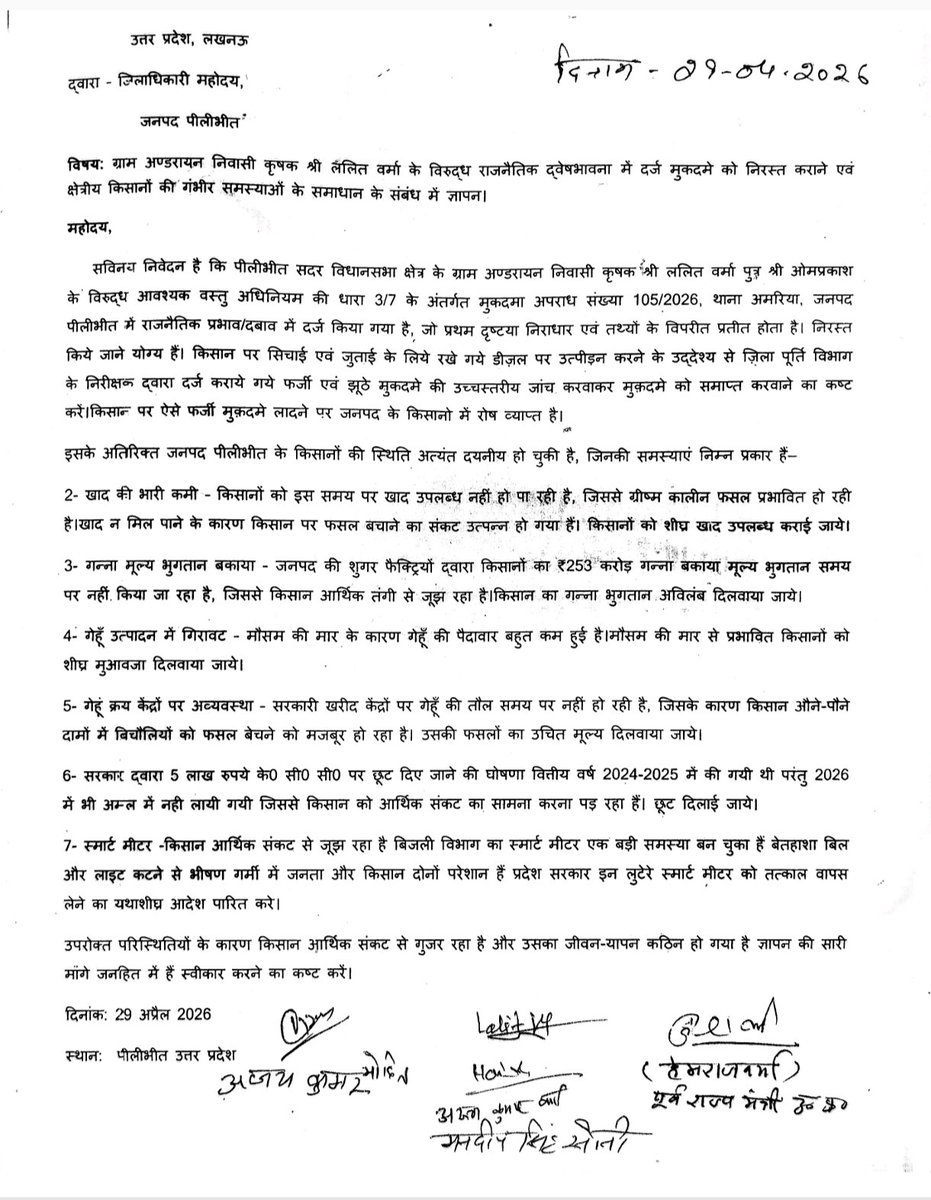 उत्तर प्रदेश, लखनऊ
दिनांक - 29-04.2026
द्वारा - जिलाधिकारी महोदय,
जनपद पीलीभीत
विषय: ग्राम अण्डरायन निवासी कृषक श्री ललित वर्मा के विरुद्ध राजनैतिक द्वेषभावना में दर्ज मुकदमे को निरस्त कराने एवं
क्षेत्रीय किसानों की गंभीर समस्याओं के समाधान के संबंध में ज्ञापन।
महोदय,
सविनय निवेदन है कि पीलीभीत सदर विधानसभा क्षेत्र के ग्राम अण्डरायन निवासी कृषक श्री ललित वर्मा पुत्र श्री ओमप्रकाश
के विरुद्ध आवश्यक वस्तु अधिनियम की धारा 3/7 के अंतर्गत मुकदमा अपराध संख्या 105/2026, थाना अमरिया, जनपद
पीलीभीत में राजनैतिक प्रभाव/दबाव में दर्ज किया गया है, जो प्रथम दृष्टया निराधार एवं तथ्यों के विपरीत प्रतीत होता है। निरस्त
किये जाने योग्य हैं। किसान पर सिचाई एवं जुताई के लिये रखे गये डीज़ल पर उत्पीड़न करने के उद्देश्य से ज़िला पूर्ति विभाग
के निरीक्षक द्वारा दर्ज कराये गये फर्जी एवं झूठे मुकदमे की उच्चस्तरीय जांच करवाकर मुक़दमे को समाप्त करवाने का कष्ट
करें।किसान पर ऐसे फर्जी मुक़दमे लादने पर जनपद के किसानो में रोष व्याप्त है।
इसके अतिरिक्त जनपद पीलीभीत के किसानों की स्थिति अत्यंत दयनीय हो चुकी है, जिनकी समस्याएं निम्न प्रकार हैं–
2- खाद की भारी कमी - किसानों को इस समय पर खाद उपलब्ध नहीं हो पा रही है, जिससे ग्रीष्म कालीन फसल प्रभावित हो रही
है।खाद न मिल पाने के कारण किसान पर फसल बचाने का संकट उत्पन्न हो गया हैं। किसानों को शीघ्र खाद उपलब्ध कराई जाये।
3- गन्ना मूल्य भुगतान बकाया - जनपद की शुगर फैक्ट्रियों द्वारा किसानों का ₹253 करोड़ गन्ना बकाया मूल्य भुगतान समय
पर नहीं किया जा रहा है, जिससे किसान आर्थिक तंगी से जूझ रहा है।किसान का गन्ना भुगतान अविलंब दिलवाया जाये।
4- गेहूँ उत्पादन में गिरावट - मौसम की मार के कारण गेहूँ की पैदावार बहुत कम हुई है।मौसम की मार से प्रभावित किसानों को
शीघ्र मुआवजा दिलवाया जाये।
5- गेहूं क्रय केंद्रों पर अव्यवस्था - सरकारी खरीद केंद्रों पर गेहूँ की तौल समय पर नहीं हो रही है, जिसके कारण किसान औने-पौने
दामों में बिचौलियों को फसल बेचने को मजबूर हो रहा है। उसकी फसलों का उचित मूल्य दिलवाया जाये।
6- सरकार द्वारा 5 लाख रुपये के0 सी0 सी0 पर छूट दिए जाने की घोषणा वित्तीय वर्ष 2024-2025 में की गयी थी परंतु 2026
में भी अम्ल में नही लायी गयी जिससे किसान को आर्थिक संकट का सामना करना पड़ रहा हैं। छूट दिलाई जाये।
7- स्मार्ट मीटर -किसान आर्थिक संकट से जूझ रहा है बिजली विभाग का स्मार्ट मीटर एक बड़ी समस्या बन चुका हैं बेतहाशा बिल
और लाइट कटने से भीषण गर्मी में जनता और किसान दोनों परेशान हैं प्रदेश सरकार इन लुटेरे स्मार्ट मीटर को तत्काल वापस
लेने का यथाशीघ्र आदेश पारित करे।
उपरोक्त परिस्थितियों के कारण किसान आर्थिक संकट से गुजर रहा है और उसका जीवन-यापन कठिन हो गया है ज्ञापन की सारी
मांगे जनहित में हैं स्वीकार करने का कष्ट करें।
दिनांक: 29 अप्रैल 2026
स्थान: पीलीभीत उत्तर प्रदेश
कुमार
(हेमराज वर्मा)
पूर्व राज्य मंत्री उ० प्र०
सिंह